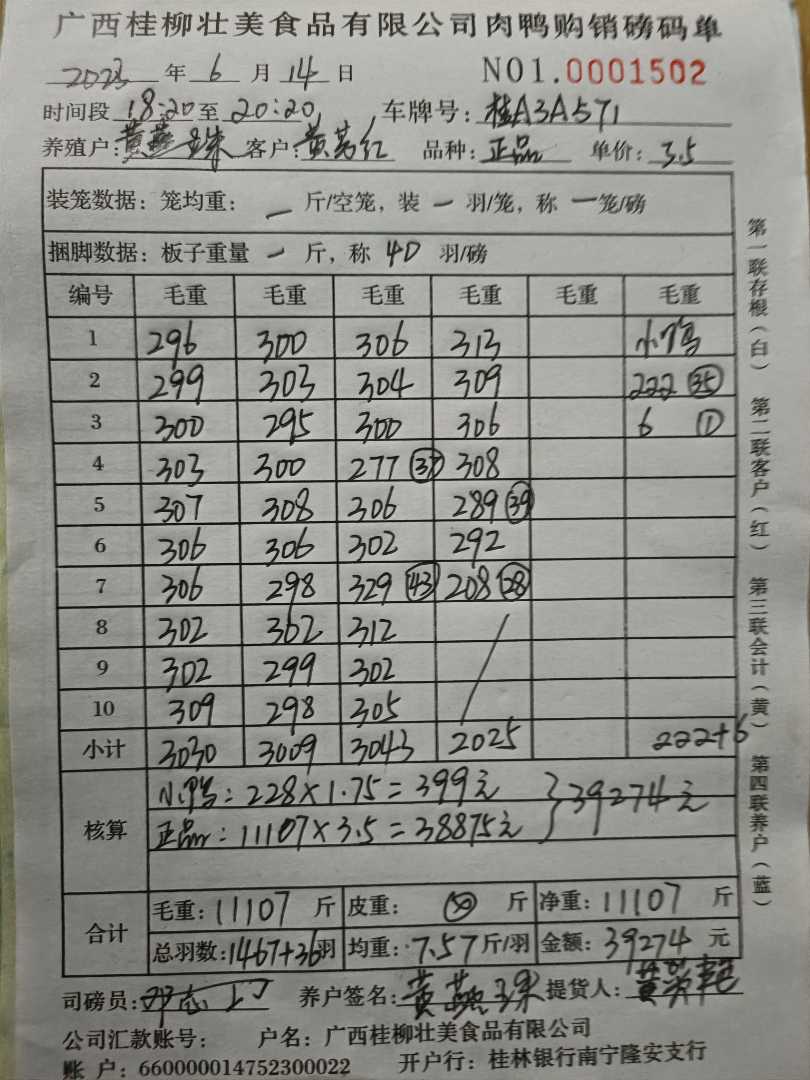 广西桂柳壮美食品有限公司肉鸭购销磅码单
2023 年 6 月 14 日 NO1.0001502
时间段 18:20 至 20:20 车牌号: 桂A3A571
养殖户: 黄燕珠 客户: 黄芳红 品种: 正品 单价: 3.5
装笼数据: 笼均重: 一 斤/空笼, 装 一 羽/笼, 称 一 笼/磅
捆脚数据: 板子重量 一 斤, 称 40 羽/磅
编号 毛重 毛重 毛重 毛重 毛重 毛重
1 296 300 306 313 小鸭
2 299 303 304 309 222 ㉟
3 300 295 300 306 6 ①
4 303 300 277 ㊲ 308
5 307 308 306 289 ㊴
6 306 306 302 292
7 306 298 329 ㊸ 208 ㉘
8 302 302 312
9 302 299 302
10 309 298 305
小计 3030 3009 3043 2025 222+6
核算 小鸭: 228×1.75=399元 } 39274元
正品: 11107×3.5=38875元
合计 毛重: 11107 斤 皮重: 斤 净重: 11107 斤
总羽数: 1467+36羽 均重: 7.57斤/羽 金额: 39274 元
司磅员: 养户签名: 黄燕珠 提货人:
公司汇款账号: 户名: 广西桂柳壮美食品有限公司
账 户: 660000014752300022 开户行: 桂林银行南宁隆安支行
第一联存根(白) 第二联客户(红) 第三联会计(黄) 第四联养户(蓝)